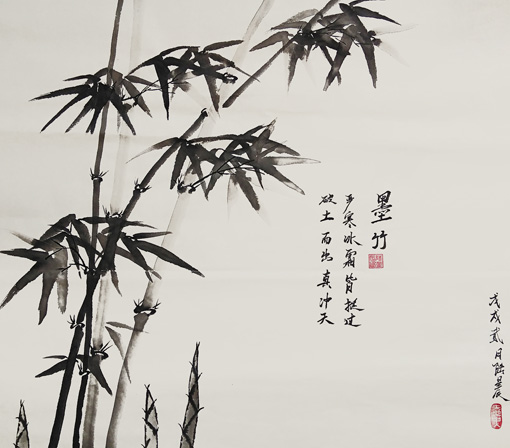 墨竹
严寒冰霜皆挺过
破土而出真冲天
戊戌贰月